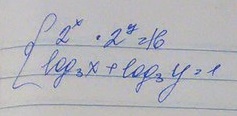 2^x · 2^y = 16
log₃x + log₃y = 1